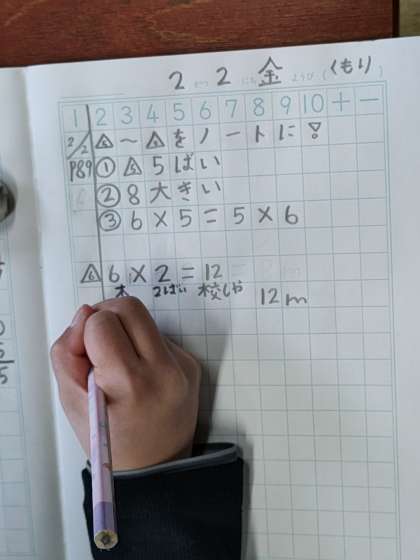 2 2 金 ようび(くもり)
1 2 3 4 5 6 7 8 9 10 + −
2/2 △5 〜 △6 をノートに!
P89 ① △5 5ばい
② 8大きい
③ 6×5=5×6
△6 6×2=12
木 2ばい 校しゃ 12m